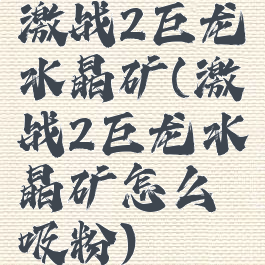 激战2巨龙
水晶矿(激
战2巨龙水
晶矿怎么
吸粉)